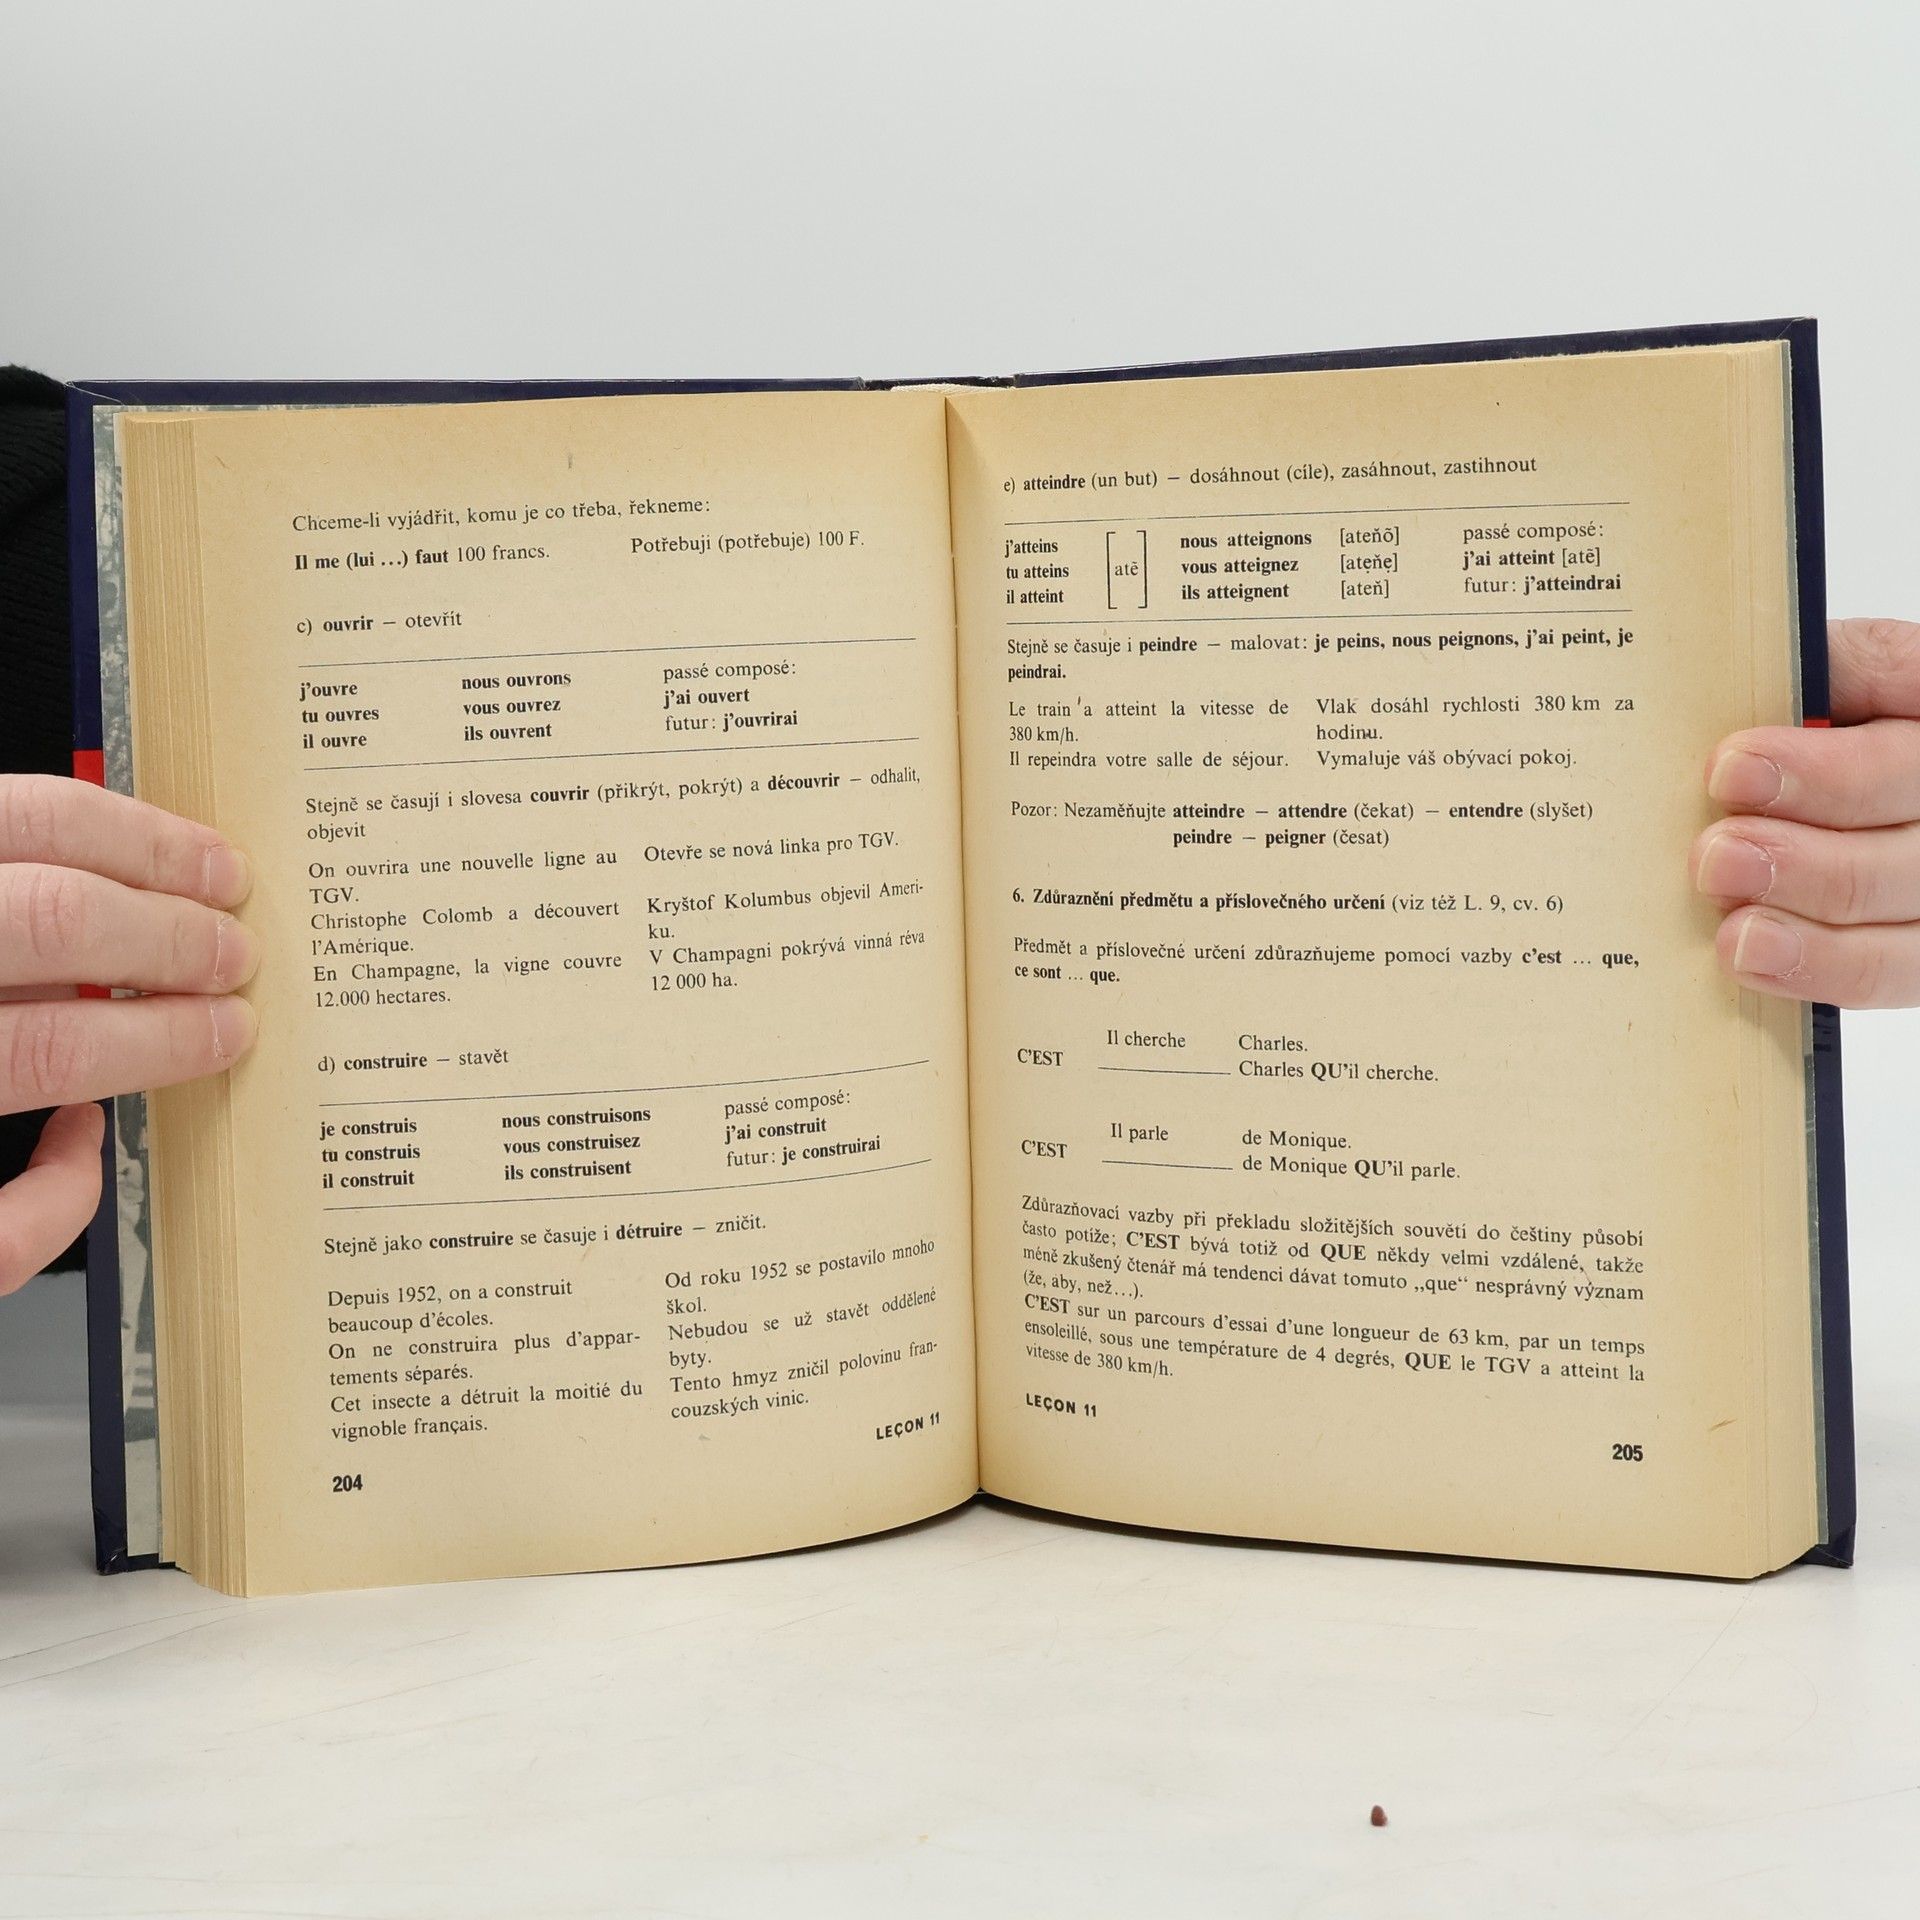 Chceme-li vyjádřit, komu je co třeba, řekneme:
Il me (lui ...) faut 100 francs. Potřebuji (potřebuje) 100 F.
c) ouvrir – otevřít
j'ouvre nous ouvrons passé composé:
tu ouvres vous ouvrez j'ai ouvert
il ouvre ils ouvrent futur: j'ouvrirai
Stejně se časují i slovesa couvrir (přikrýt, pokrýt) a découvrir – odhalit,
objevit
On ouvrira une nouvelle ligne au Otevře se nová linka pro TGV.
TGV.
Christophe Colomb a découvert Kryštof Kolumbus objevil Ameri-
l'Amérique. ku.
En Champagne, la vigne couvre V Champagni pokrývá vinná réva
12.000 hectares. 12 000 ha.
d) construire – stavět
je construis nous construisons passé composé:
tu construis vous construisez j'ai construit
il construit ils construisent futur: je construirai
Stejně jako construire se časuje i détruire – zničit.
Depuis 1952, on a construit Od roku 1952 se postavilo mnoho
beaucoup d'écoles. škol.
On ne construira plus d'appar- Nebudou se už stavět oddělené
tements séparés. byty.
Cet insecte a détruit la moitié du Tento hmyz zničil polovinu fran-
vignoble français. couzských vinic.
LEÇON 11
204
e) atteindre (un but) – dosáhnout (cíle), zasáhnout, zastihnout
j'atteins nous atteignons [ateňõ] passé composé:
tu atteins [atẽ] vous atteignez [atẹňẹ] j'ai atteint [atẽ]
il atteint ils atteignent [ateň] futur: j'atteindrai
Stejně se časuje i peindre – malovat: je peins, nous peignons, j'ai peint, je
peindrai.
Le train a atteint la vitesse de Vlak dosáhl rychlosti 380 km za
380 km/h. hodinu.
Il repeindra votre salle de séjour. Vymaluje váš obývací pokoj.
Pozor: Nezaměňujte atteindre – attendre (čekat) – entendre (slyšet)
peindre – peigner (česat)
6. Zdůraznění předmětu a příslovečného určení (viz též L. 9, cv. 6)
Předmět a příslovečné určení zdůrazňujeme pomocí vazby c'est ... que,
ce sont ... que.
Il cherche Charles.
C'EST Charles QU'il cherche.
Il parle de Monique.
C'EST de Monique QU'il parle.
Zdůrazňovací vazby při překladu složitějších souvětí do češtiny působí
často potíže; C'EST bývá totiž od QUE někdy velmi vzdálené, takže
méně zkušený čtenář má tendenci dávat tomuto „que“ nesprávný význam
(že, aby, než...).
C'EST sur un parcours d'essai d'une longueur de 63 km, par un temps
ensoleillé, sous une température de 4 degrés, QUE le TGV a atteint la
vitesse de 380 km/h.
LEÇON 11
205